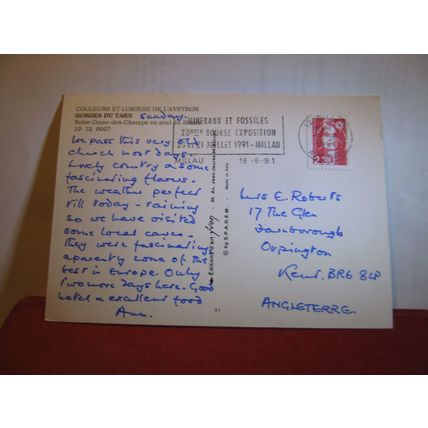 COULEURS ET LUMIERE DE L'AVEYRON
GORGES DU TARN
Notre-Dame-des-Champs en aval du Rozier
10 12 0007
Sunday.
We pass this very old
church most days.
Lovely country & some
fascinating flowers.
The weather perfect
till today - raining
so we have visited
some local caves.
They were fascinating
aparently some of the
best in Europe. Only
two more days here. Good
hotel & excellent food
Ann.
MINERAUX ET FOSSILES
20eme BOURSE EXPOSITION
JUILLET 1991 - MILLAU
MILLAU 18-6-91
Editions d'art yvon
© by S.P.A.D.E.M. - Made in
Mrs E. Roberts
17 The Glen
Farnborough
Orpington
Kent. BR6 8LP
ANGLETERRE.